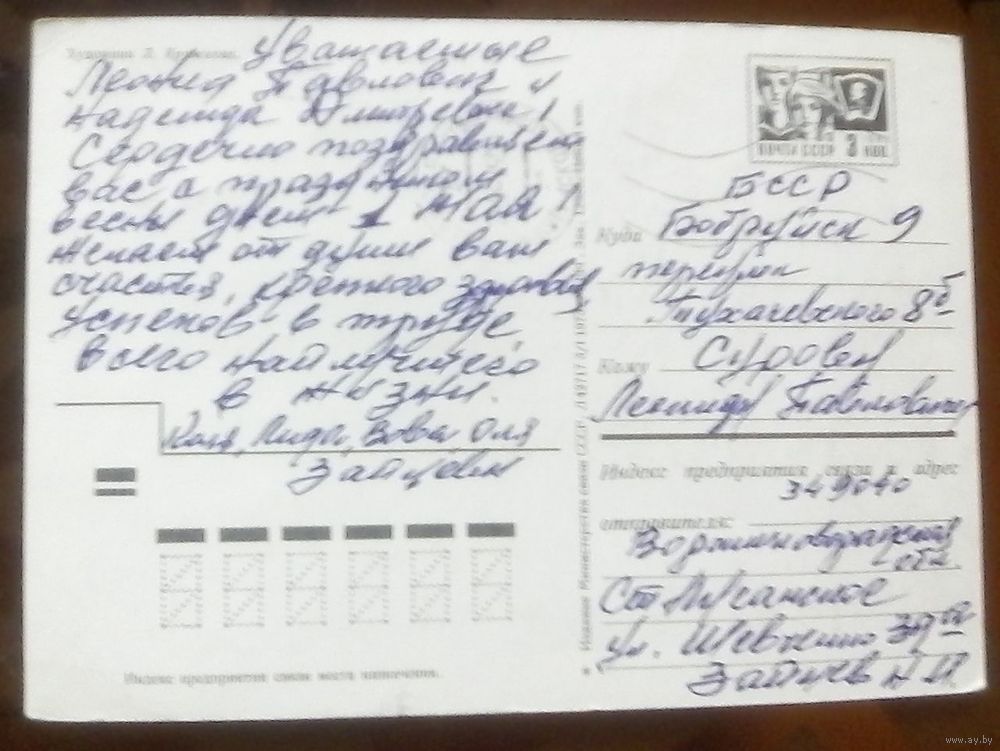 Художник Л.
Уважаемые
Леонид Павлович и
Надежда Дмитревна!
Сердечно поздравляем
вас с праздником
весны днем 1 мая!
Желаем от души вам
счастья, крепкого здоровья,
успехов в труде,
всего наилучшего
в жизни.
Коля, Лида, Вова Оля
Зайцевы
Индекс предприятия связи места назначения.
Министерства связи СССР.
ПОЧТА СССР 3 КОП.
БССР
Куда Бобруйск 9
Тухачевского 8б
Кому
Леониду Павловичу
Индекс предприятия связи и адрес
349040
отправителя:
Ворошиловградская
обл.
Ст Луганское
ул. Шевченко
Зайцев Н И
www.ay.by